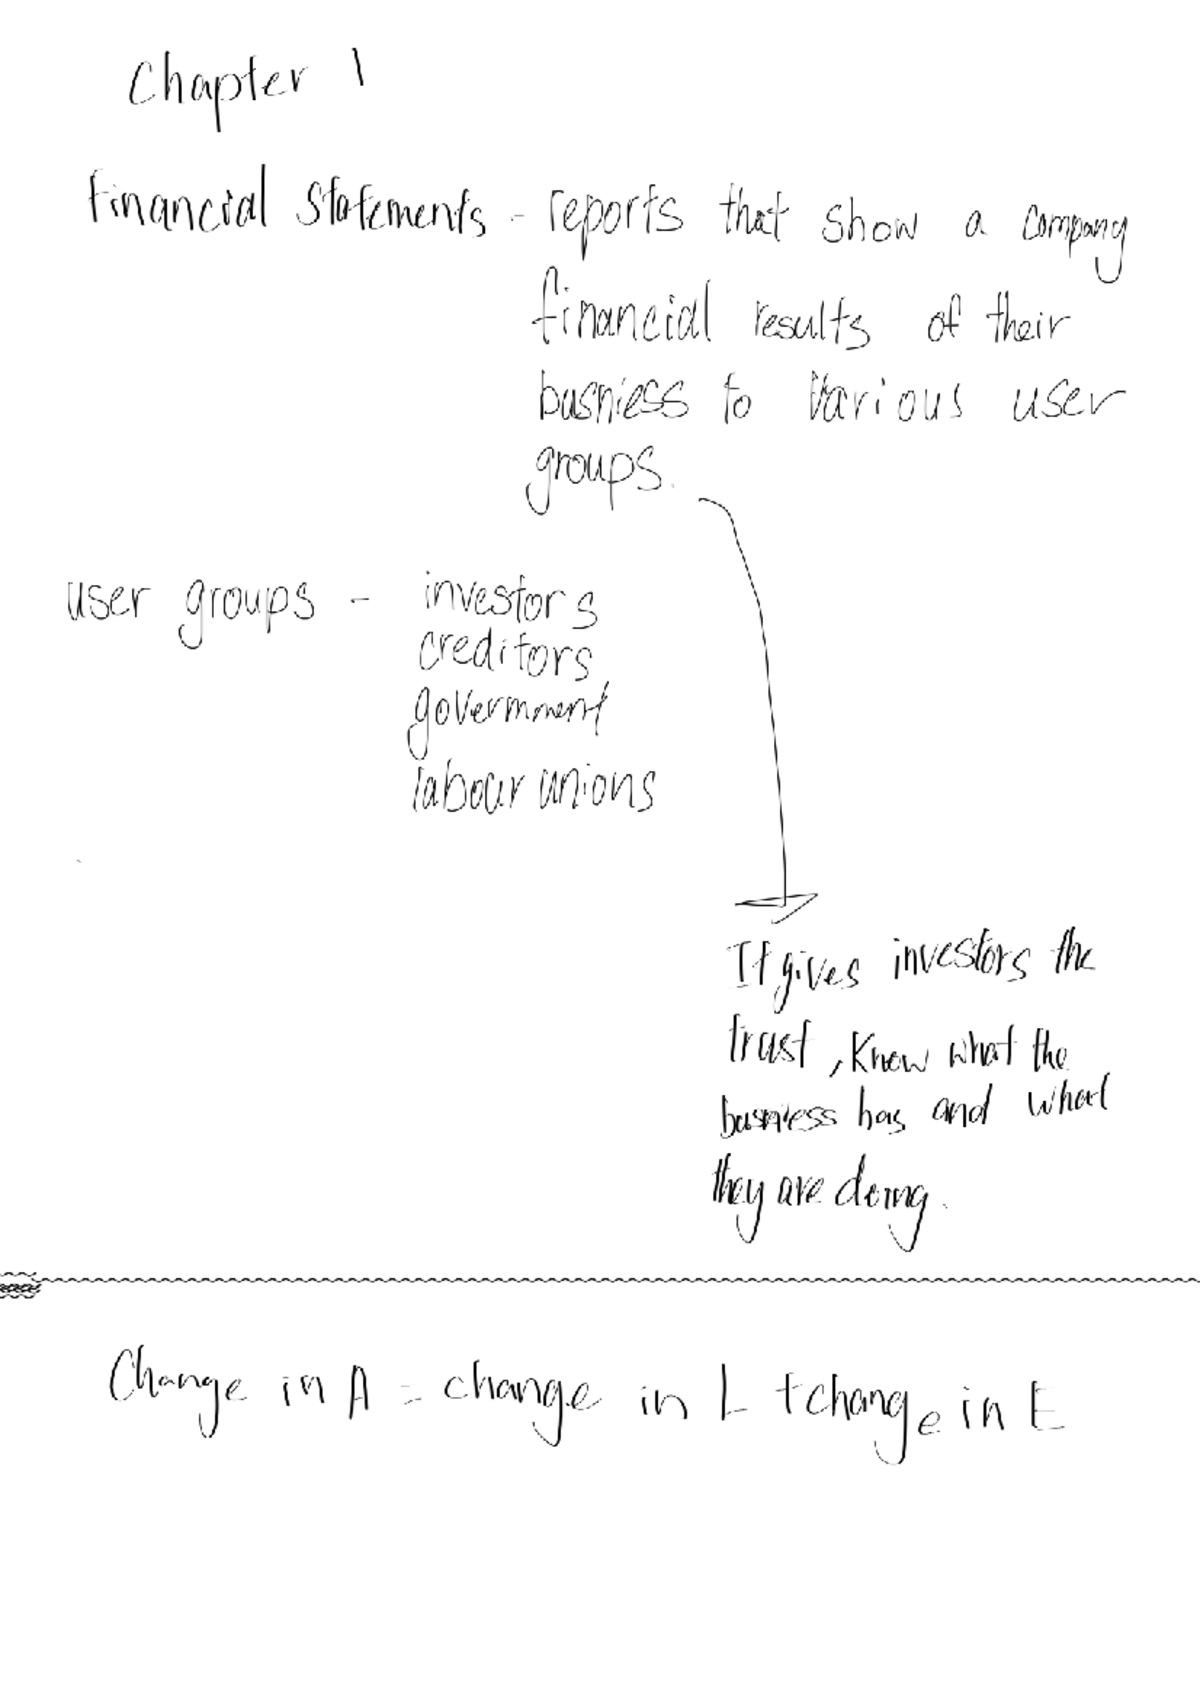 Chapter 1
financial statements - reports that show a company
financial results of their
busniess to various user
groups.
user groups - investors
creditors
government
labour unions
It gives investors the
trust, know what the
busniess has and what
they are doing.
Change in A = change in L + change in E